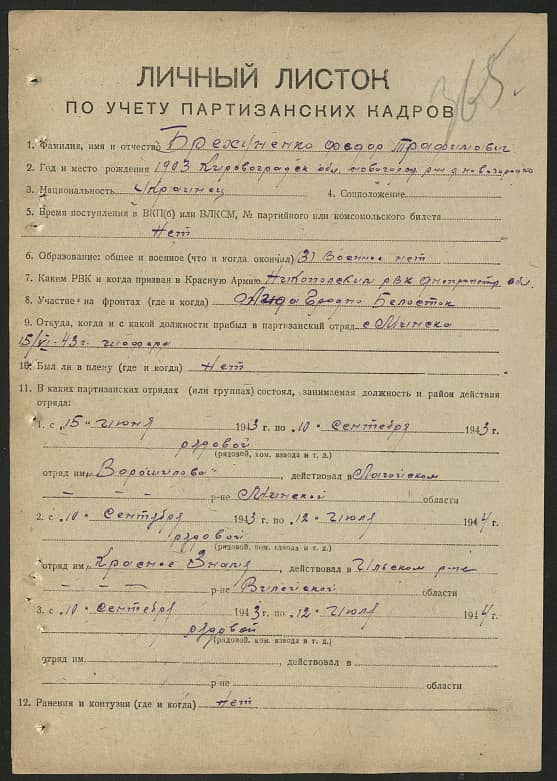 365.
ЛИЧНЫЙ ЛИСТОК
ПО УЧЕТУ ПАРТИЗАНСКИХ КАДРОВ
1. Фамилия, имя и отчество Брехуненко Федор Трафимович
2. Год и место рождения 1903 Кировоградск обл. Новогород р-н д. Новгородка
3. Национальность Украинец 4. Соцположение
5. Время поступления в ВКП(б) или ВЛКСМ, № партийного или комсомольского билета
Нет
6. Образование: общее и военное (что и когда окончил) 3) Военное нет
7. Каким РВК и когда призван в Красную Армию Никопольским рвк Днепропетр. обл.
8. Участие на фронтах (где и когда) Гродно Белосток
9. Откуда, когда и с какой должности прибыл в партизанский отряд с Минска
15/VI-43 г. шофера
10. Был ли в плену (где и когда) нет
11. В каких партизанских отрядах (или группах) состоял, занимаемая должность и район действия
отряда:
1. с 15 " Июня 1943 г. по 10 " Сентября 1943 г.
рядовой
(рядовой, ком. взвода и т. д.)
отряд им. Ворошилова, действовал в Лагойском
— — р-не Минской области
2. с 10 " Сентября 1943 г. по 12 " Июля 1944 г.
рядовой
(рядовой, ком. взвода и т. д.)
отряд им. Красное Знамя, действовал в Ильском р-не
— — — р-не Вилейской области
3. с 10 " Сентебя 1943 г. по 12 " Июля 1944 г.
рядовой
(рядовой, ком. взвода и т. д.)
отряд им. , действовал в
р-не области
12. Ранения и контузии (где и когда) нет